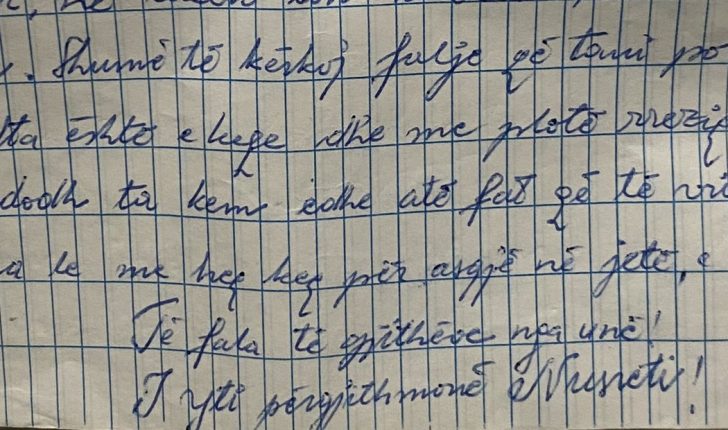 . Shumë të kërkoj falje që tani po
ta është e keqe dhe me plotë rreziq
dodh ta kem edhe atë fat që të
a le me heq keq për asgjë në jetë, e
Të fala të gjithëve nga unë!
I yti përgjithmonë Nusreti!